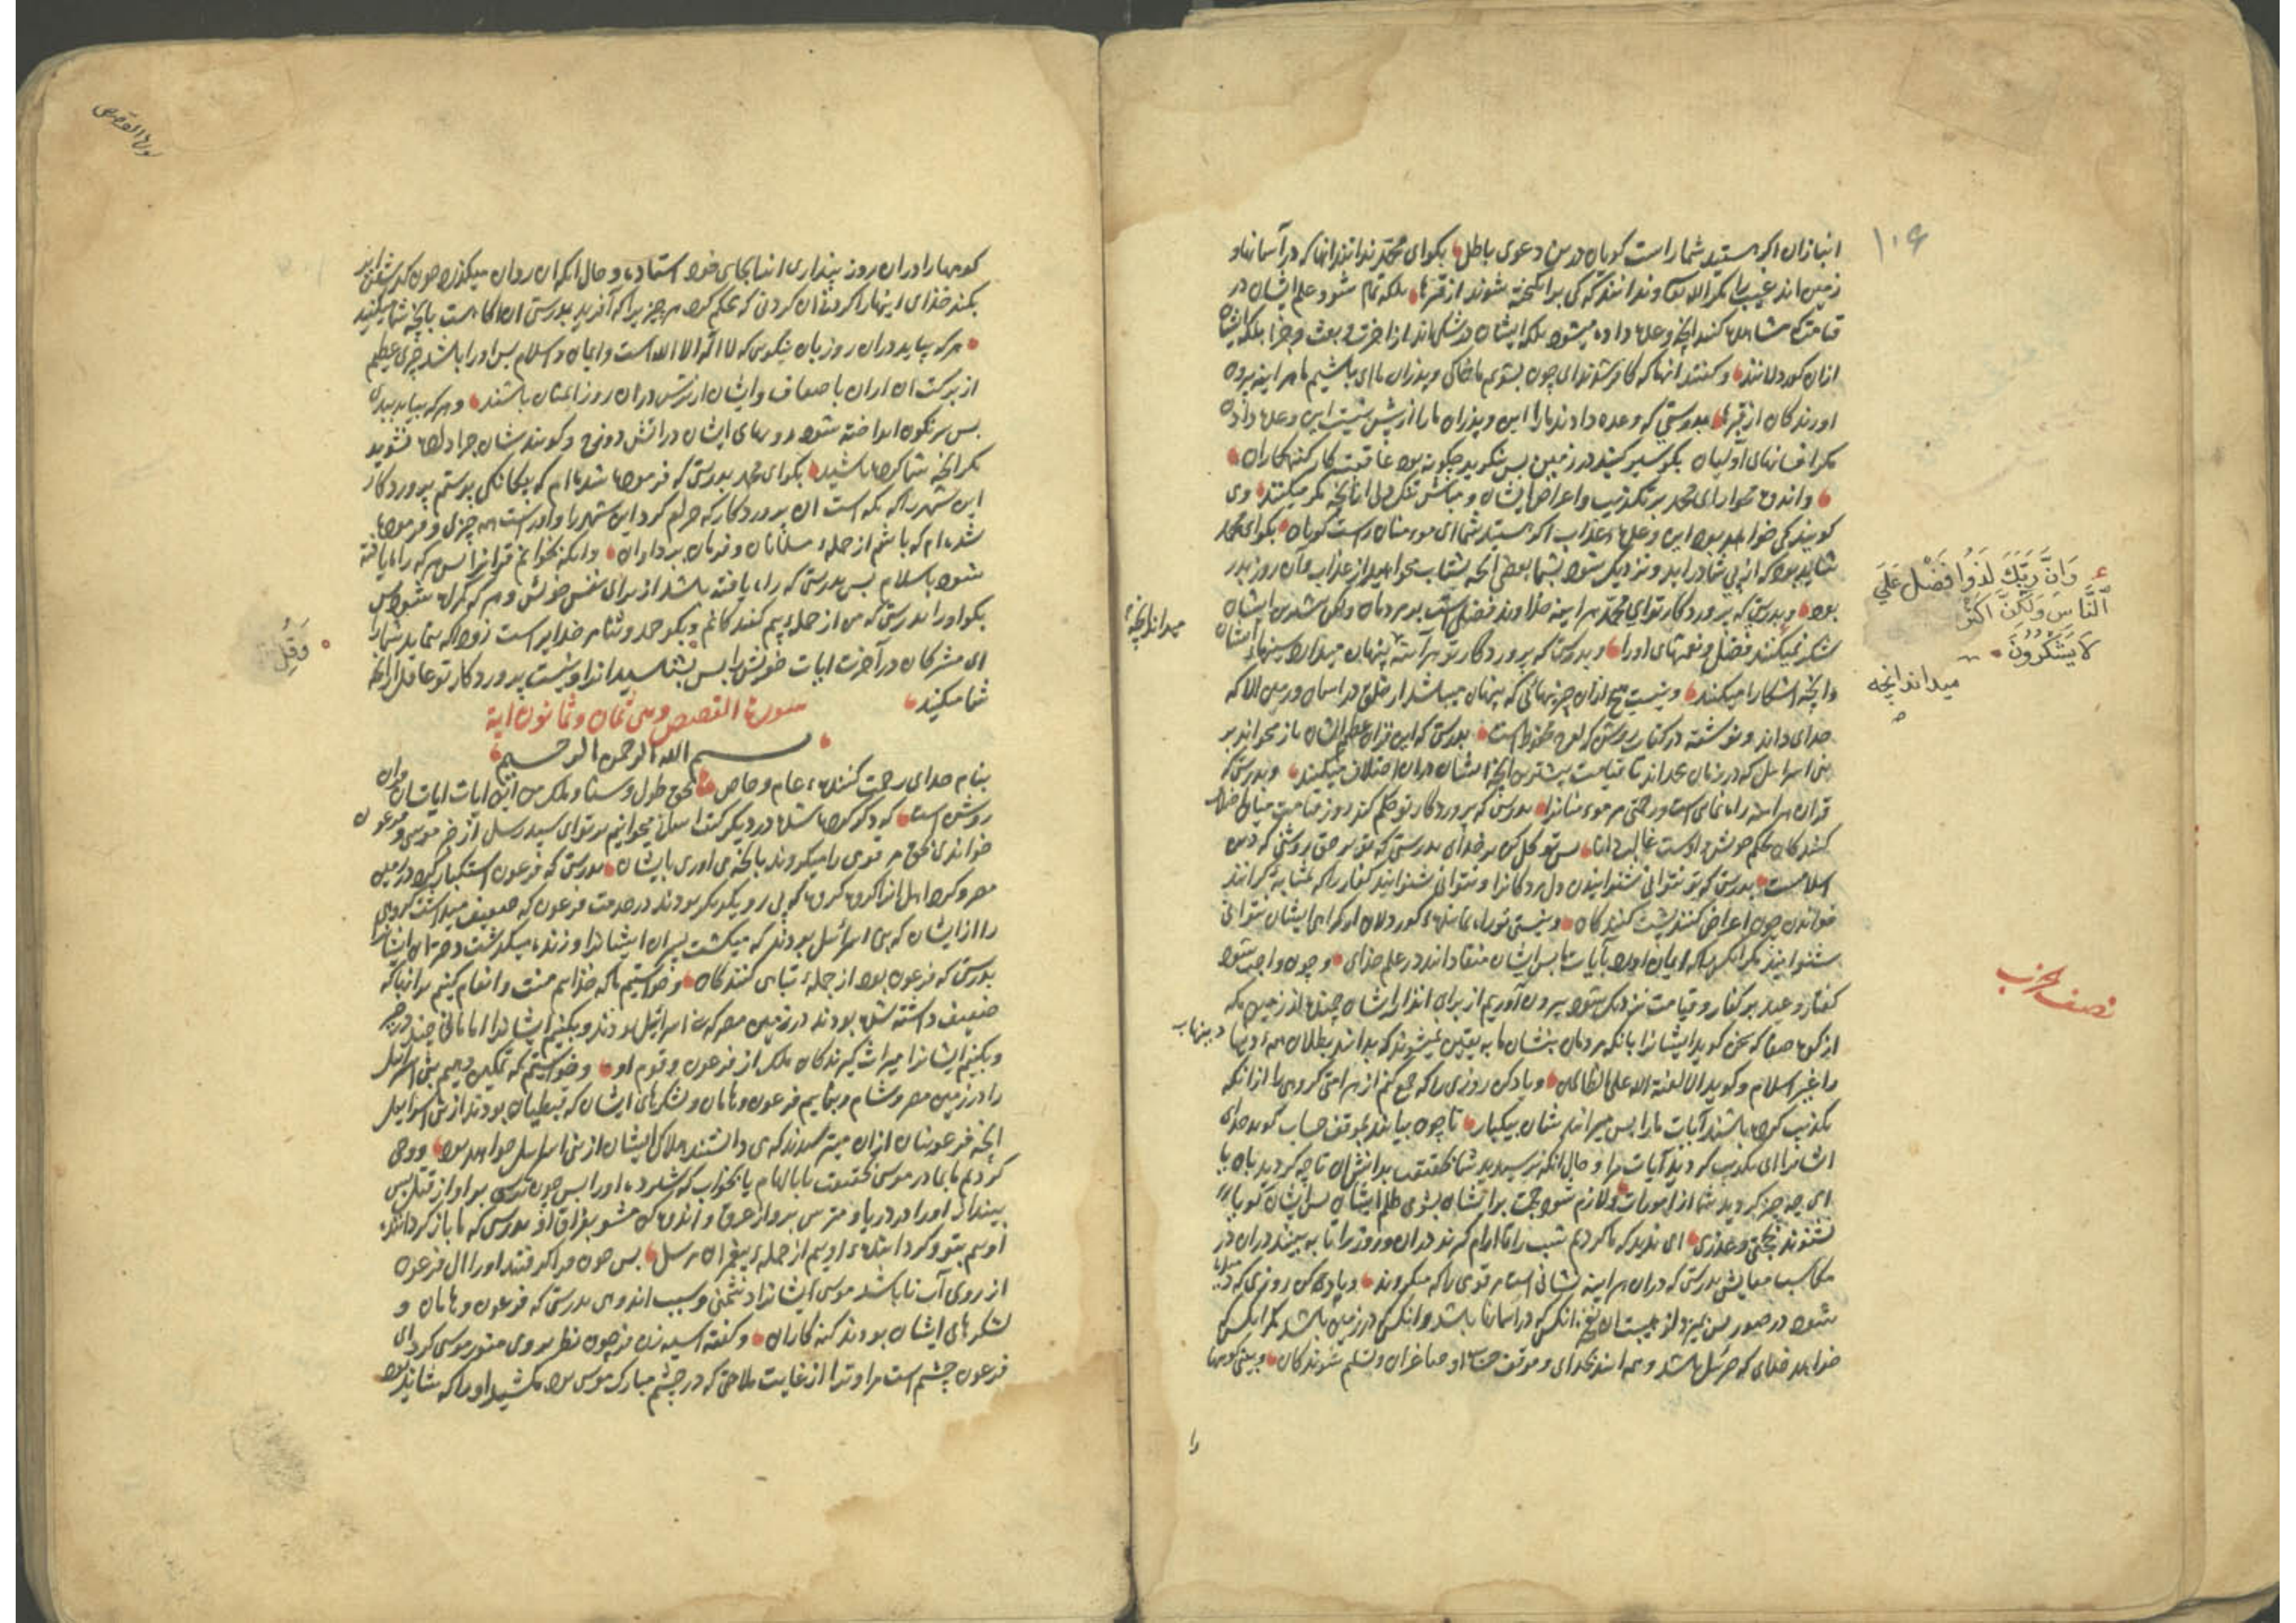 ۱۰۶
انبازان اکر هستید شما راست کویان درین دعوی باطل بکوای محمد ندانند انها که در آسمانها و
زمین اند غیب را مکر الله تعا و ندانند که کی برانکیخته شوند از قبرها بلکه تمام شود علم ایشان در
قیامت که مشاهده کنند انچه وعده داده میشود بلکه ایشان در شکی اند از اخرت و بعث و جزا بلکه ایشان
ازان کور دلانند و کفتند انها که کافر شدند ای چون بشویم ما خاکی و پدران ما ای باشیم ما هر اینه بیرون
اورندکان از قبرها بدرستی که وعده دادند ما را این و پدران ما را از پیش نیست این وعده داده
مکر افسانهای اولیان بکو سیر کنید در زمین پس بنکرید چکونه بود عاقبت کار کنهکاران
و اندوه مخور ای محمد بر تکذیب و اعراض ایشان و مباش تنک دلی از انچه مکر میکنند و می
کویند کی خواهد بود این وعده عذاب اکر هستید شما ای مومنان راست کویان بکوای محمد
شاید بود که از پی شما دراید و نزدیک شود بشما بعضی انچه بشتاب میخواهید از عذاب و آن روز بدر
بود و بدرستی که پروردکار تو ای محمد هر اینه خداوند فضل است بر مردمان ولکن بیشترین ایشان
شکر نمیکنند فضل و نعمتهای اورا و بدرستی که پروردکار تو هر آینه پنهان میدارد سینهای ایشان
و انچه اشکارا میکنند و نیست هیچ ازان چیزهائی که پنهان میباشد از خلق در اسمان و زمین الا که
خدای داند و نوشته در کتاب روشن که لوح محفوظ است بدرستی که این قران عظیم الشان باز میخواند بر
بنی اسرائیل که در زمان محمد اند تا قیامت بیشترین انچه ایشان دران اختلاف میکنند و بدرستی که
قران هر اینه راه نمای است و رحمتی مر مومنانرا بدرستی که پروردکار تو حکم کند روز قیامت میان خلاف
کنندکان بحکم خویش و اوست غالب دانا پس توکل کن بر خدای بدرستی که تو بر حق روشنی که دین
اسلامست بدرستی که تو نتوانی شنوانیدن دل مردکانرا و نتوانی شنوانید کفار را که بمثابه کرانند
خواندن چون اعراض کنند پشت کنندکان و نیستی تو راه نماینده کور دلان از کمراهی ایشان نتوانی
شنوانید مکر انکسها که ایمان اورد بآیات ما پس ایشان منقادانند در علم خدای و چون واجب شود
کفتار وعید بر کفار و قیامت نزدیک شود بیرون آوریم از برای انذار ایشان چهنده از زمین مکه
از کوه صفا که سخن کوید ایشانرا بانکه مردمان بنشانهای ما به یقین نمیشوند که بدانند بطلان همه دینها
را غیر اسلام و کوید الا لعنة الله علی الظالمین و یاد کن روزی را که جمع کنیم از هر امتی کروهی را ازانکه
تکذیب کرده باشند آیات ما را پس میرانند شان بیکبار تا چون بیایند بموقف حساب کوید خدای
ایشانرا ای تکذیب کردید آیات مرا و حال انکه نرسیدید شما بحقیقت بدانش ان تا چه کردید بان یا
ای چه چیز کردید شما از امورات و لازم شود حجت بر ایشان بشومی ظلم ایشان پس ایشان کویا
نشوند بحجتی و عذری ای ندیدید که ما کردیم شب را تا ارام کیرند دران و روز را تا به بینند دران در
مکاسب معایش بدرستی که دران هر اینه نشانی است مر قومی را که میکروند و یاد کن روزی که دمیده
شود در صور پس بمیرد از هیبت ان نفخ انکس که در اسمانها باشد و انکس که در زمین باشد مکر انکس که
خواهد خدای که جبرئیل باشد و همه ایند بخدای و موقف حساب او صاغران و تسلیم شوندکان و بینی کوهها
وَاِنَّ رَبَّكَ لَذُوا فَضْلٍ عَلَي
النَّاسِ وَلَكِنَّ اَكْثَر
لَا يَشْكُرُونَ
میداند انچه
نصف الحزب
میداند انچه
دینهاب
را
سورة القصص
کوهها را دران روز پنداری انها بجای خود استاده و حال انکه ان روان میکذرد چون کذشتن ابر
بکند خدای اینها را کردن ان کردنی که محکم کرد هر چیزی را که آفرید بدرستی ان اکاهست بانچه شما میکنید
هر که بیاید دران روز بان نیکویی که لا اله الا الله است و ایمان و اسلام پس اورا باشد جزای عظیم
از برکت ان اران با ضعاف و ایشان از ترس دران روز ایمنان باشند و هر که بیاید ببدی
پس سرنکون انداخته شود رویهای ایشان در اتش دوزخ و کویند شان جزا داده نشوید
مکر انچه شما کرده باشید بکوای محمد بدرستی که فرموده شده ام که بیکانکی پرستم پروردکار
این شهر را که مکه است ان پروردکار که حرام کرد این شهر را و اوراست همه چیزی و فرموده
شده ام که باشم از جمله مسلمانان و فرمان برداران و انکه بخوانم قرانرا پس هر که راه یافته
شود باسلام پس بدرستی که راه یافته باشد از برای نفس خویش و هر که کمراه شود پس
بکو اورا بدرستی که من از جمله بیم کنندکانم و بکو حمد و ثنا مر خدایراست زود که بنماید شما را
ای مشرکان در آخرت ایات خویش را پس بشناسید انرا و نیست پروردکار تو غافل از انچه
شما میکنید
سورة القصص وهی ثمان وثمانون اية
بسم الله الرحمن الرحیم
بنام خدای رحمت کننده عام و خاص بحق طول و سنا و ملک من این ایات ایات قران
روشن است که ذکر کرده شده در دیکر کتب اسلاف میخوانیم بر تو ای سید رسل از خبر موسی و فرعون
خواندنی بحق مر قومی را میکروند بانچه می اوری بایشان بدرستی که فرعون استکبار کرد در زمین
مصر و کرد اهل انرا کروه کروه که پی رو یکدیکر بودند در خدمت فرعون که ضعیف میداشت کروهی
را از ایشان که بنی اسرائیل بودند که میکشت پسران ایشانرا و زنده میکذاشت دختران ایشانرا
بدرستی که فرعون بود از جمله تباهی کنندکان و خواستیم ما که خدایم منت و انعام کنیم بر انها که
ضعیف داشته شده بودند در زمین مصر که بنی اسرائیل بودند و بکنیم ایشانرا امامانی چند در خیر
و بکنیم ایشانرا میراث کیرندکان ملک از فرعون و قوم او و خواستیم که تمکین دهیم بنی اسرائیل
را در زمین مصر و شام و بنماییم فرعون و هامان و لشکرهای ایشان که قبطیان بودند از بنی اسرائیل
انچه فرعونیان ازان میترسیدند که می دانستند هلاک ایشان از بنی اسرائیل خواهد بود و وحی
کردیم ما بمادر موسی بحقیقت یا بالهام یا بخواب که شیر ده اورا پس چون ترسی بر او از قتل پس
بینداز اورا در دریا و مترس بر و از غرق و اندوهکن مشو بفراق او بدرستی که ما باز کردانند
اویم بتو و کرداننده اویم از جمله پیغمبران مرسل پس چون فرا کرفتند اورا ال فرعون
از روی آب تا باشد موسی ایشانرا دشمنی و سبب اندوهی بدرستی که فرعون و هامان و
لشکرهای ایشان بودند کنه کاران و کفت اسیه زن فرعون چون نظر بروی منور موسی کرد ای
فرعون چشم است مرا و ترا از غایت ملاحتی که در چشم مبارک موسی بود مکشید اورا که شاید بود
وَقُلِ